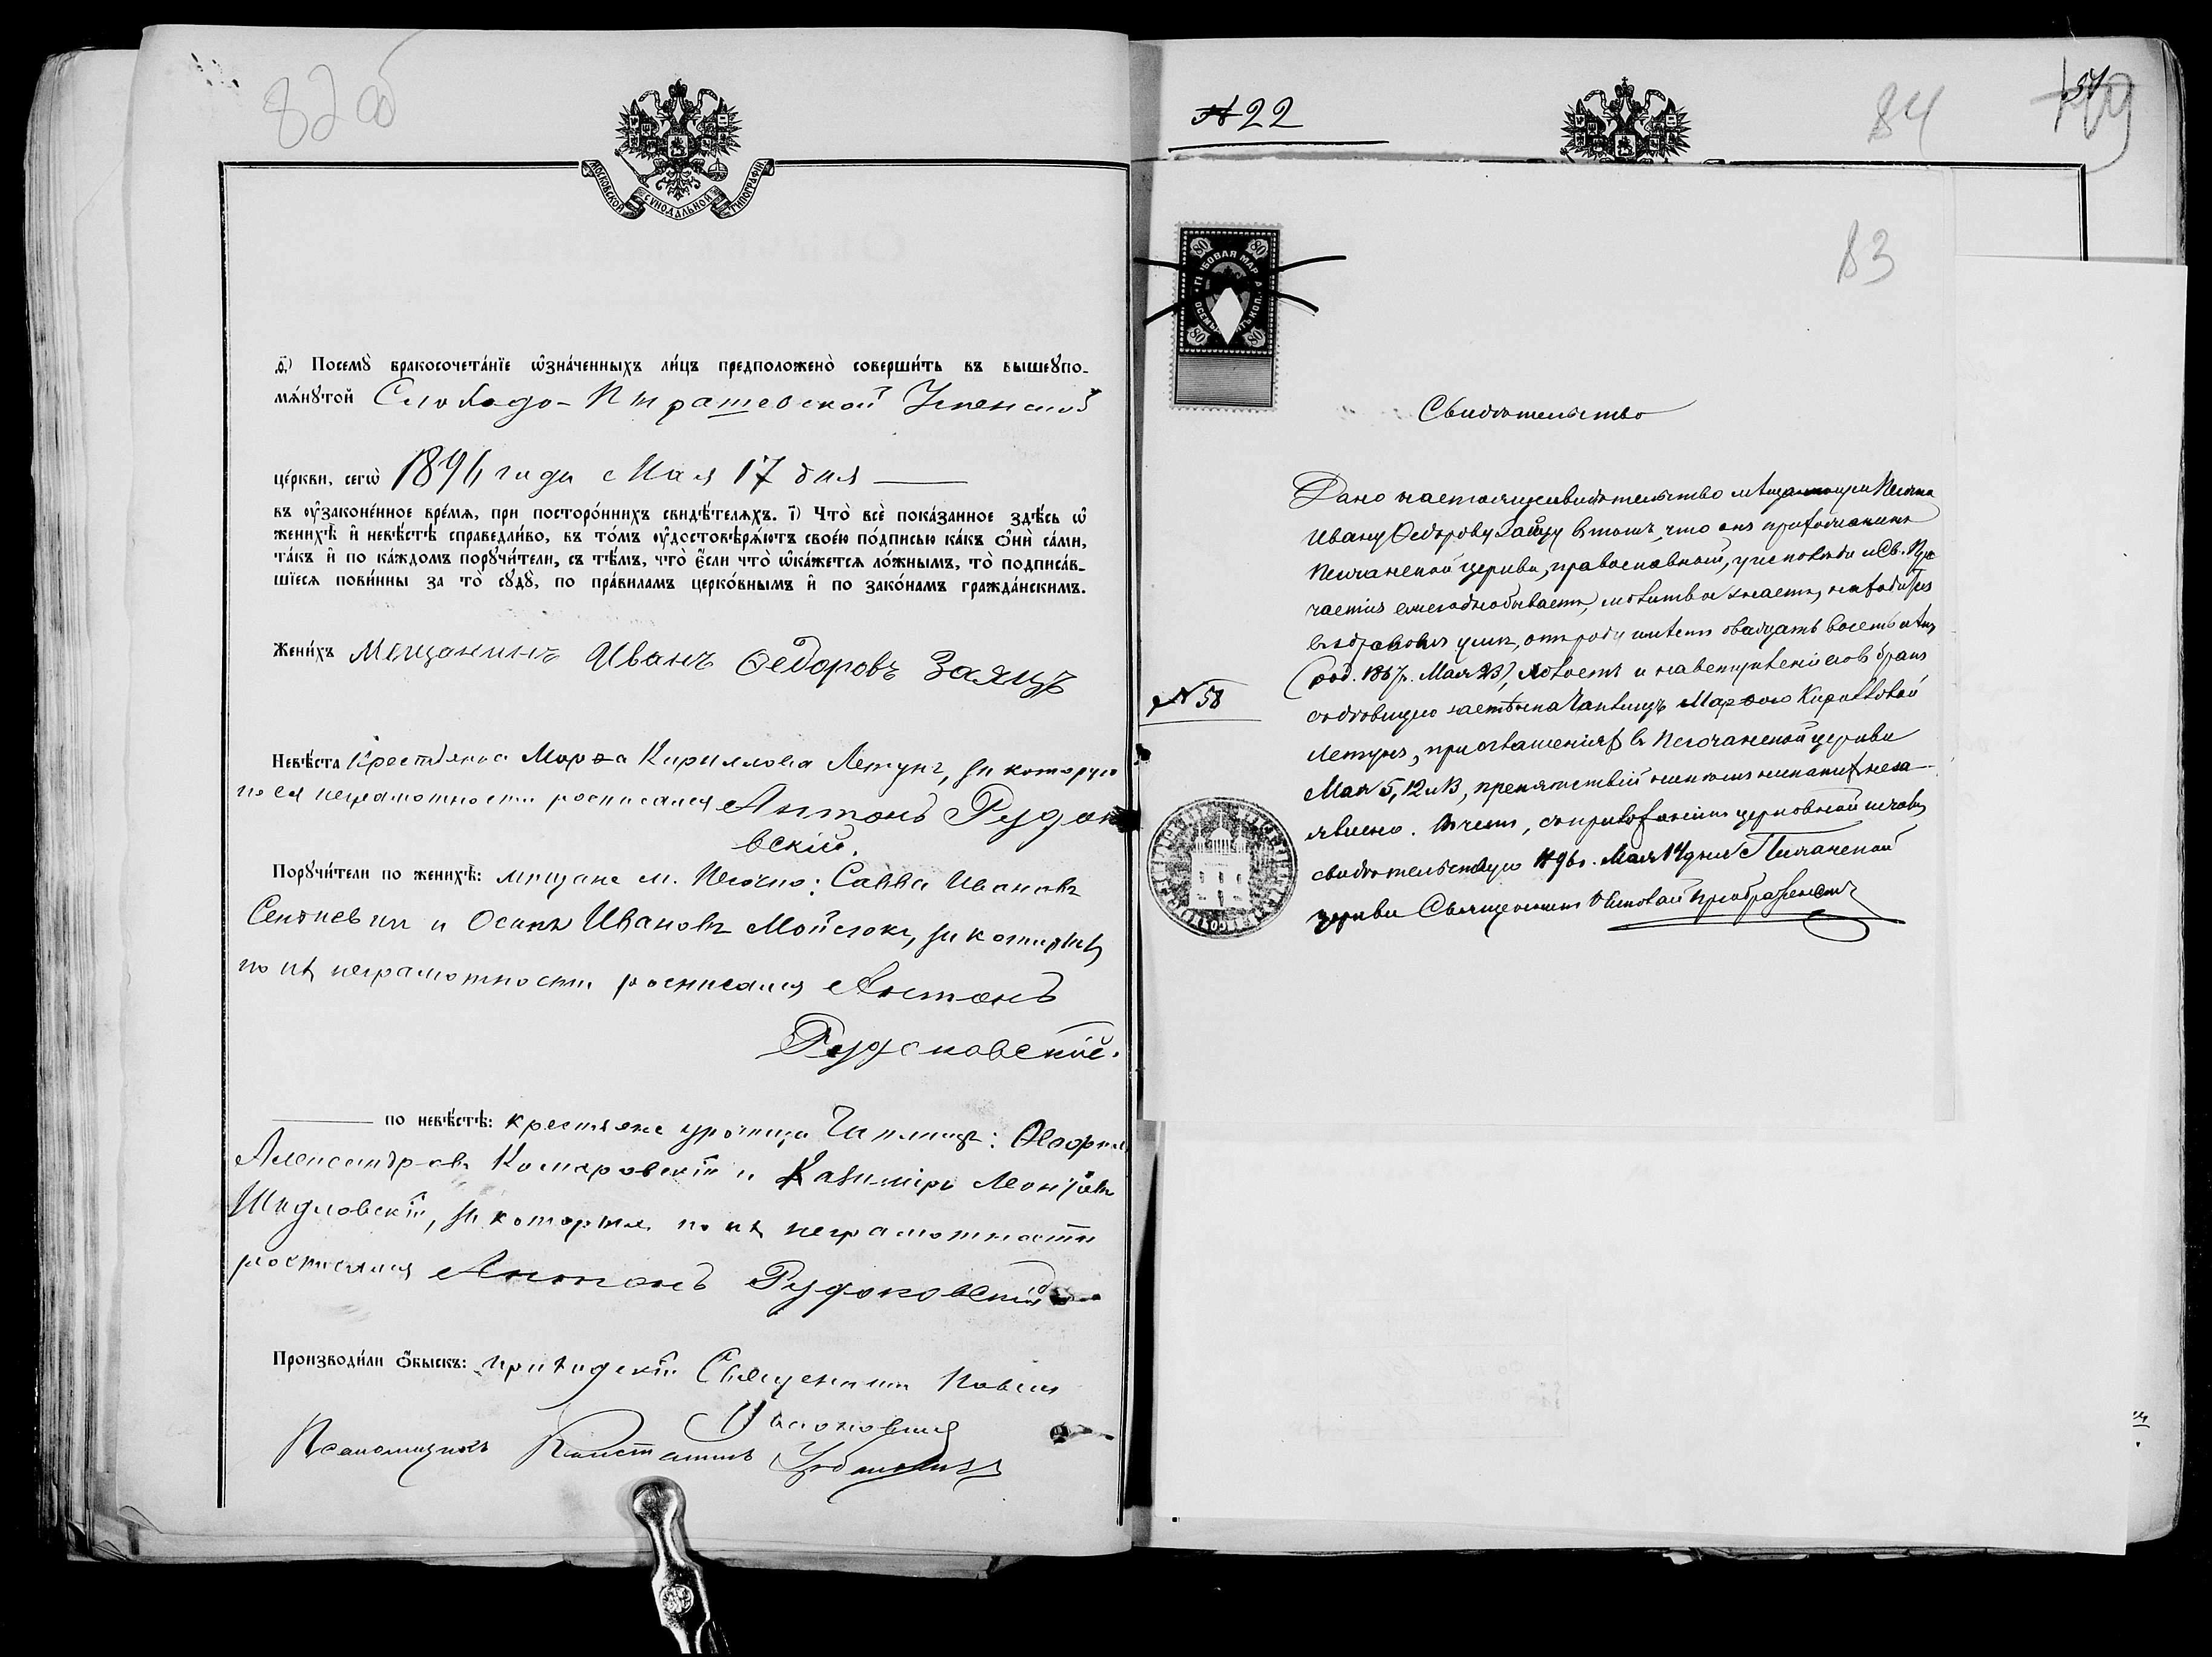 82 об
МОСКОВСКОЙ СУНОДАЛЬНОЙ ТИПОГРАФІИ
д҃і) Посемꙋ̀ бракосочета́нїе ѡ҆зна́ченныхъ ли́цъ предположено̀ соверши́ть въ вышеꙋпо-
мѧ́нꙋтой Слободо-Пырашевской Успенской
це́ркви, сегѡ̀ 1896 года Мая 17 дня
въ оу҆законе́нное вре́мѧ, при посторо́ннихъ свидѣ́телѧхъ. і҃) Что̀ всѐ пока́занное здѣ́сь ѡ҆
женихѣ̀ и҆ невѣ́стѣ справедли́во, въ то́мъ оу҆достовѣрѧ́ютъ свое́ю по́дписью ка́къ ѻ҆нѝ са́ми,
та́къ и҆ по ка́ждомъ порꙋчи́тели, съ тѣ́мъ, что̀ є҆́сли что̀ ѡ҆ка́жетсѧ ло́жнымъ, то̀ подписа́в-
шїесѧ пови́нны за то̀ сꙋдꙋ̀, по пра́виламъ церко́внымъ и҆ по зако́намъ гражда́нскимъ.
Жени́хъ Мещанинъ Иванъ Ѳедоровъ Заяцъ
Невѣ́ста Крестьянка Марѳа Кириллова Летунъ, за которую
по ея неграмотности росписался Антонъ Рудаков
вскій.
Порꙋчи́тели по женихѣ̀: мещане м. Песочно: Савва Ивановъ
и Осипъ Ивановъ Мойсюкъ, за которыхъ
по ихъ неграмотности росписался Антонъ
Рудаковскій.
по невѣ́стѣ: крестьяне урочища Чаплищъ:
Александровъ Комаровскій и Казиміръ Леонтіевъ
Шидловскій, за которыхъ по ихъ неграмотности
росписался Антонъ Рудаковскій
Производи́ли ѻ҆́быскъ: приходскій Священникъ Павелъ
Псаломщикъ Константинъ
№ 22
84
83
ГЕРБОВАЯ МАРКА
ВОСЕМЬДЕСЯТЪ КОП.
80 80 80 80
Свидѣтельство
Дано настоящее свидѣтельство мѣщанину Песочна
Ивану Ѳедорову Зайцу въ томъ, что онъ прихожанинъ
Песочанской церкви, православный, у исповѣди и Св. При-
частія ежегодно бываетъ, молитвы знаетъ, находится
въ здравомъ умѣ, отъ роду имѣетъ двадцать восемь лѣтъ
(род. 1867 г. Мая 23), холостъ и на вступленіе его въ бракъ
№ 58
съ дѣвицею Чаплищъ Марѳою Кирилловой
Летунъ, при оглашеніяхъ въ Песочанской церкви
Мая 5, 12 и 13, препятствій никѣмъ никакихъ не за-
явлено. Въ чемъ, съ приложеніемъ церковной печати,
свидѣтельствую 1896 г. Мая 14 дня Песочанской
церкви Священникъ Преображенскій